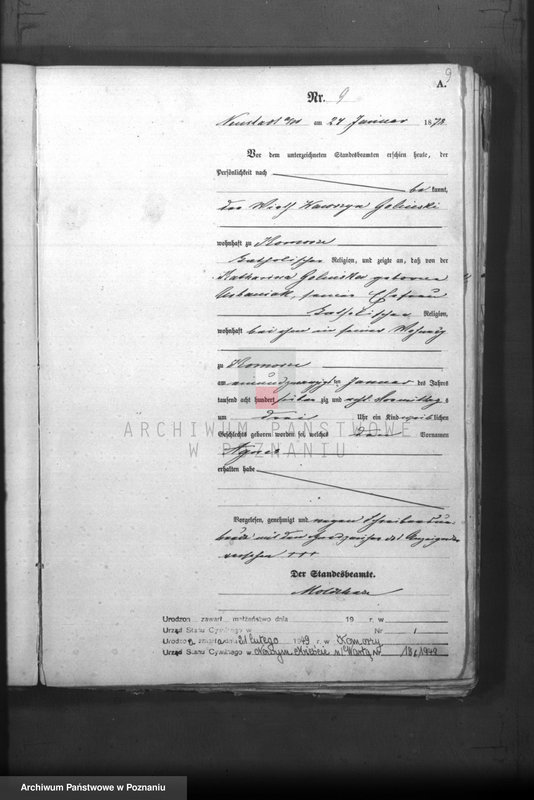 9
A.
Nr. 9
Neustadt a/W am 24 Januar 1878
Vor dem unterzeichneten Standesbeamten erschien heute, der
Persönlichkeit nach
be kannt,
der Wirth Golinski
wohnhaft zu Komorze
katholischer Religion, und zeigte an, daß von der
Katharina Golinska geborene
Urbaniak, seiner Ehefrau
katholischer Religion,
wohnhaft bei ihm in seiner Wohnung
zu Komorze
am einundzwanzigsten Januar des Jahres
tausend acht hundert siebenzig und acht Vormittags
um drei Uhr ein Kind weiblichen
Geschlechts geboren worden sei, welches den Vornamen
Agnes
erhalten habe
Vorgelesen, genehmigt und wegen Schreibensun-
kunde mit den Handzeichen des Anzeigenden
versehen +++
Der Standesbeamte.
ARCHIWUM PAŃSTWOWE
W POZNANIU
Urodzon zawarł małżeństwo dnia 19 r. w
Urząd Stanu Cywilnego w Nr /
Urodzon zmarła dnia 21 lutego 1949 r. w Komorzy
Urząd Stanu Cywilnego w Nowym Mieście n/Wartą Nr 13/1949
Archiwum Państwowe w Poznaniu